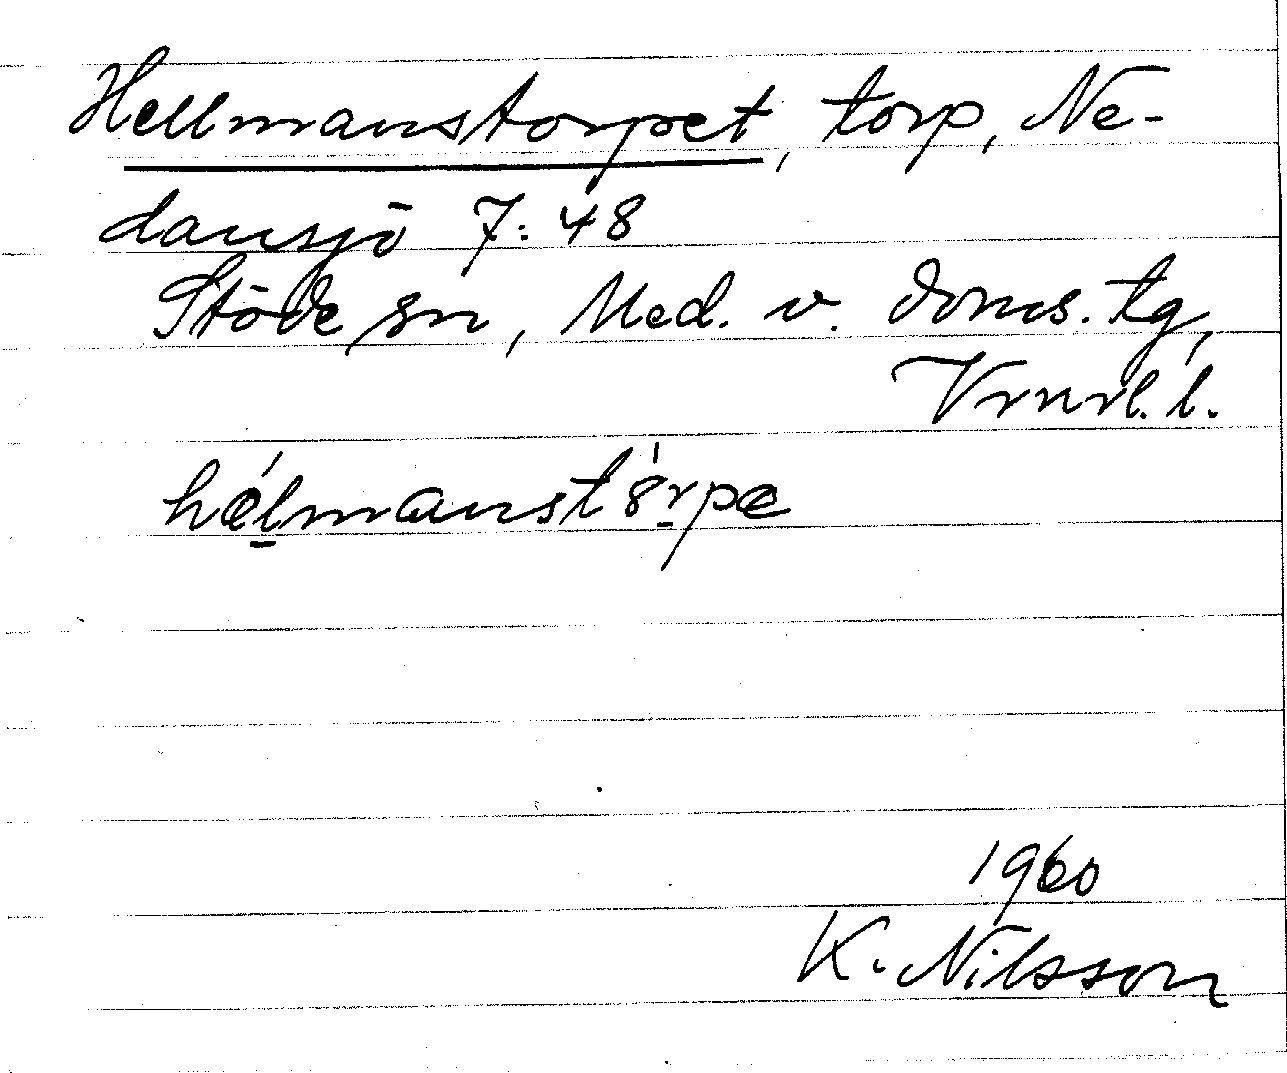 Hellmanstorpet, torp, Ne-
dansjö 7:48
Stöde sn, Med. v. doms. tg,
Vrnrl. l.
hélmanst8́rpe
1960
K. Nilsson